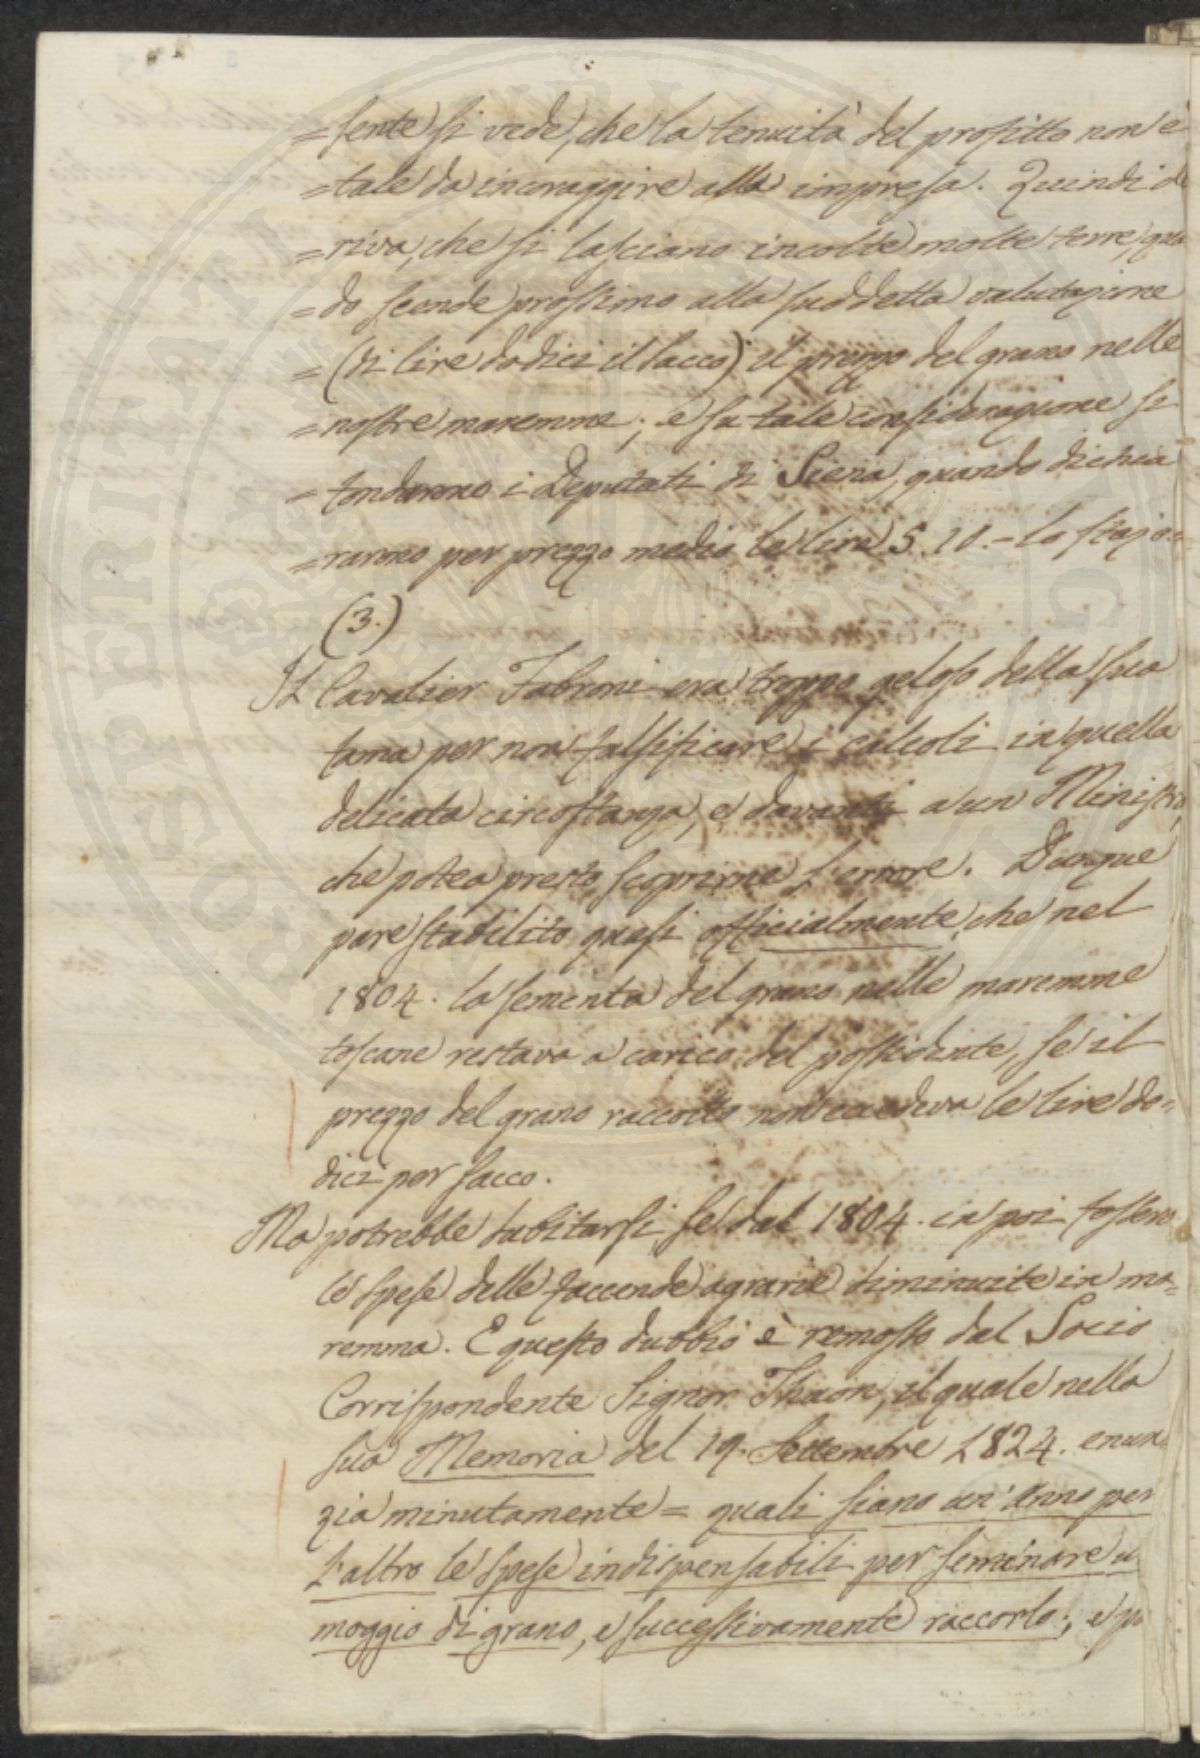 =sente si vede, che la tenuità del profitto non è
=tale da incoraggire alla impresa. Quindi de
=riva, che si lasciano incolte molte terre, qua
=do scende prossimo alla suddetta valutazione
=(di lire dodici il sacco) il prezzo del grano nelle
=nostre maremme; e su tale considerazione si
=fondarono i Deputati di Siena, quando dichia
=rarono per prezzo medio le lire 5. 10.- lo stajo=
(3.)
Il Cavalier Fabroni era troppo geloso della sua
fama per non falsificare i calcoli in quella
delicata circostanza, e davanti a un Ministro,
che potea presto scoprirne l'errore. Dunque
pare stabilito quasi officialmente, che nel
1804. la sementa del grano nelle maremme
toscane restava a carico del possidente, se il
prezzo del grano raccolto non eccedeva le lire do=
dici per sacco.
Ma potrebbe dubitarsi, se dal 1804. in poi fossero
le spese delle faccende agrarie diminuite in ma=
remma. E questo dubbio è remosso dal Socio
Corrispondente Signor Thaon, il quale nella
sua Memoria del 19. Settembre 1824. enun
zia minutamente = quali siano un'anno per
l'altro le spese indispensabili per seminare il
moggio di grano, e successivamente raccorlo; e